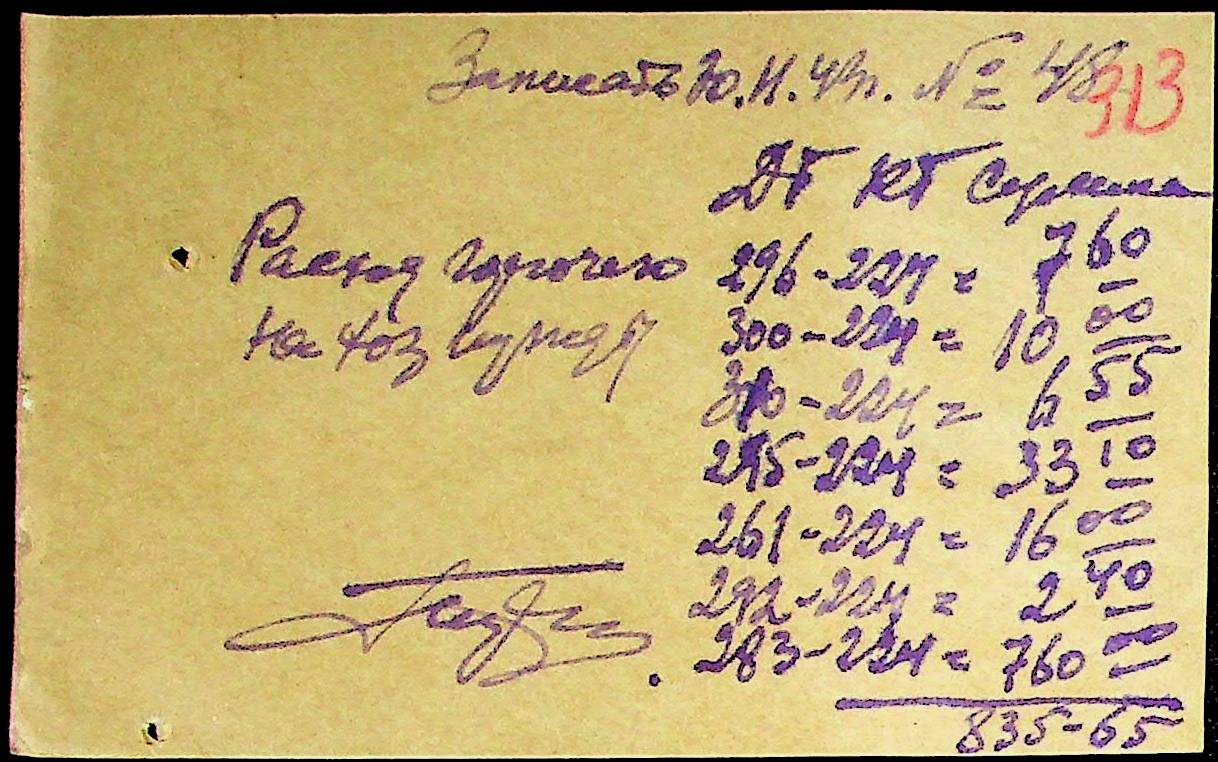 Записать № 48 313
ДТ КТ Сумма
Расход горючего 296-224 = 7 60
на хоз нужды 300-224 = 10 00
310-224 = 6 55
295-224 = 33 10
261-224 = 16 00
292-224 = 2 40
283-224 = 760 00
835-65